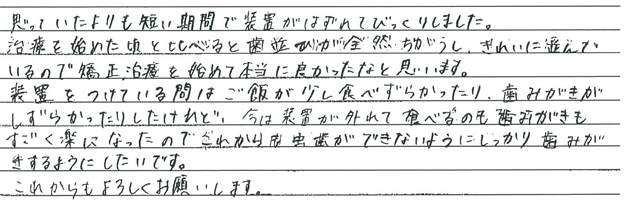 思っていたよりも短い期間で装置がはずれてびっくりしました。
治療を始めた頃と比べると歯並びが全然ちがうし、きれいに並んで
いるので矯正治療を始めて本当に良かったなと思います。
装置をつけている間はご飯が少し食べずらかったり、歯みがきが
しずらかったりしたけれど、今は装置が外れて食べるのも歯みがきも
すごく楽になったのでこれからも虫歯ができないようにしっかり歯みが
きするようにしたいです。
これからもよろしくお願いします。